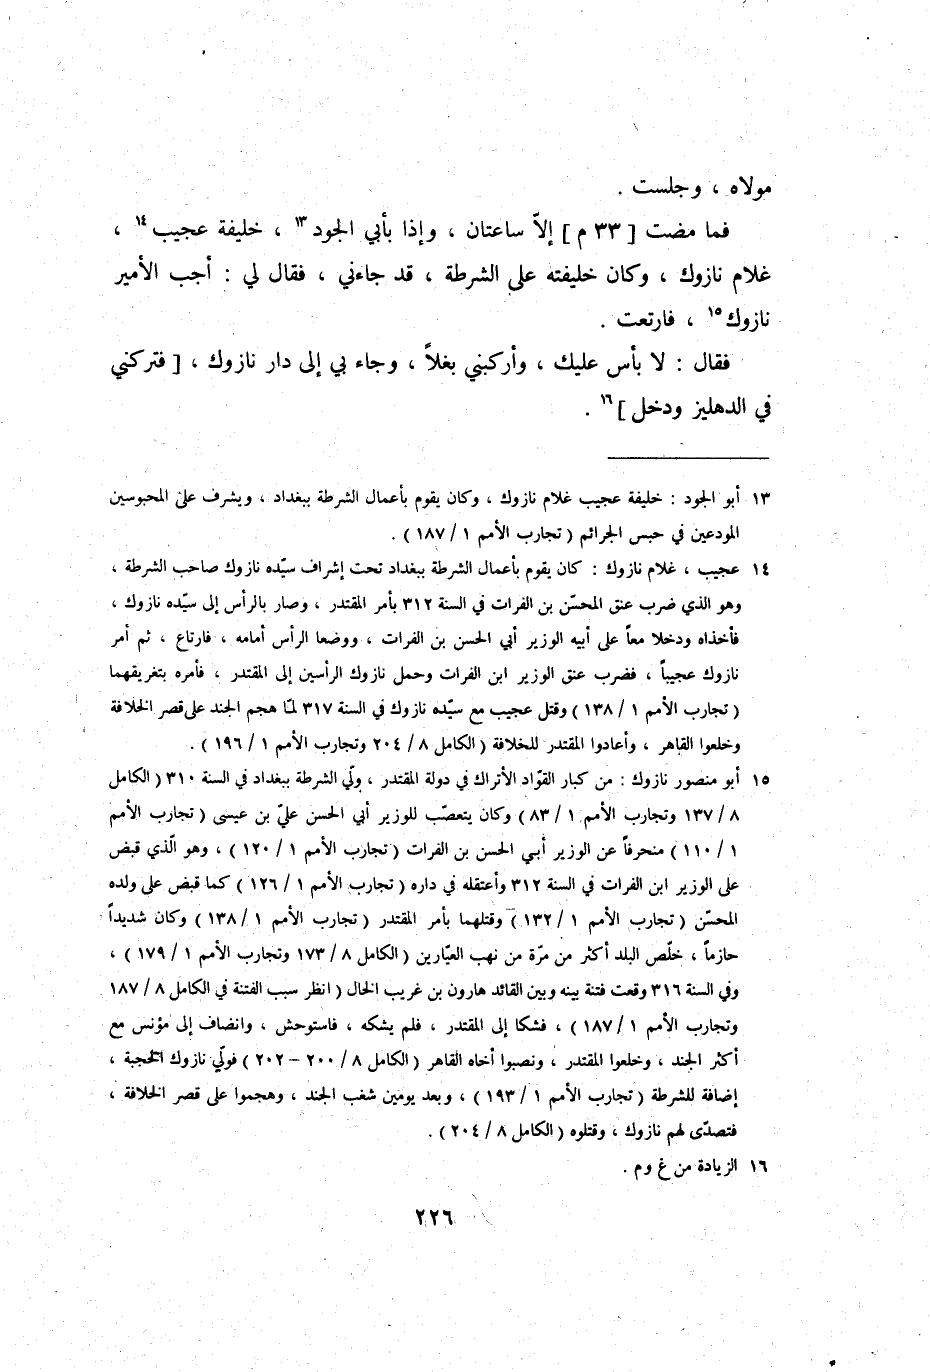 مولاه ، وجلست .
فما مضت [ ٣٣ م ] إلاّ ساعتان ، وإذا بأبي الجود١٣ ، خليفة عجيب١٤ ،
غلام نازوك ، وكان خليفته على الشرطة ، قد جاءني ، فقال لي : أجب الأمير
نازوك١٥ ، فارتعت .
فقال : لا بأس عليك ، وأركبني بغلاً ، وجاء بي إلى دار نازوك ، [ فتركني
في الدهليز ودخل ]١٦ .
١٣ أبو الجود : خليفة عجيب غلام نازوك ، وكان يقوم بأعمال الشرطة ببغداد ، ويشرف على المحبوسين
المودعين في حبس الجرائم ( تجارب الأمم ١ / ١٨٧ ) .
١٤ عجيب ، غلام نازوك : كان يقوم بأعمال الشرطة ببغداد تحت إشراف سيّده نازوك صاحب الشرطة ،
وهو الذي ضرب عنق المحسّن بن الفرات في السنة ٣١٢ بأمر المقتدر ، وصار بالرأس إلى سيّده نازوك ،
فأخذاه ودخلا معاً على أبيه الوزير أبي الحسن بن الفرات ، ووضعا الرأس أمامه ، فارتاع ، ثم أمر
نازوك عجيباً ، فضرب عنق الوزير ابن الفرات وحمل نازوك الرأسين إلى المقتدر ، فأمره بتغريقهما
( تجارب الأمم ١ / ١٣٨ ) وقتل عجيب مع سيّده نازوك في السنة ٣١٧ لمّا هجم الجند على قصر الخلافة
وخلعوا القاهر ، وأعادوا المقتدر للخلافة ( الكامل ٨ / ٢٠٤ وتجارب الأمم ١ / ١٩٦ ) .
١٥ أبو منصور نازوك : من كبار القوّاد الأتراك في دولة المقتدر ، ولّي الشرطة ببغداد في السنة ٣١٠ ( الكامل
٨ / ١٣٧ وتجارب الأمم ١ / ٨٣ ) وكان يتعصّب للوزير أبي الحسن عليّ بن عيسى ( تجارب الأمم
١ / ١١٠ ) منحرفاً عن الوزير أبي الحسن بن الفرات ( تجارب الأمم ١ / ١٢٠ ) ، وهو الّذي قبض
على الوزير ابن الفرات في السنة ٣١٢ وأعتقله في داره ( تجارب الأمم ١ / ١٢٦ ) كما قبض على ولده
المحسّن ( تجارب الأمم ١ / ١٣٢ ) وقتلهما بأمر المقتدر ( تجارب الأمم ١ / ١٣٨ ) وكان شديداً
حازماً ، خلّص البلد أكثر من مرّة من نهب العيّارين ( الكامل ٨ / ١٧٣ وتجارب الأمم ١ / ١٧٩ ) ،
وفي السنة ٣١٦ وقعت فتنة بينه وبين القائد هارون بن غريب الخال ( انظر سبب الفتنة في الكامل ٨ / ١٨٧
وتجارب الأمم ١ / ١٨٧ ) ، فشكا إلى المقتدر ، فلم يشكه ، فاستوحش ، وانضاف إلى مؤنس مع
أكثر الجند ، وخلعوا المقتدر ، ونصبوا أخاه القاهر ( الكامل ٨ / ٢٠٠ – ٢٠٢ ) فولّي نازوك الحجبة ،
إضافة للشرطة ( تجارب الأمم ١ / ١٩٣ ) ، وبعد يومين شغب الجند ، وهجموا على قصر الخلافة ،
فتصدّى لهم نازوك ، وقتلوه ( الكامل ٨ / ٢٠٤ ) .
١٦ الزيادة من غ وم .
٢٢٦